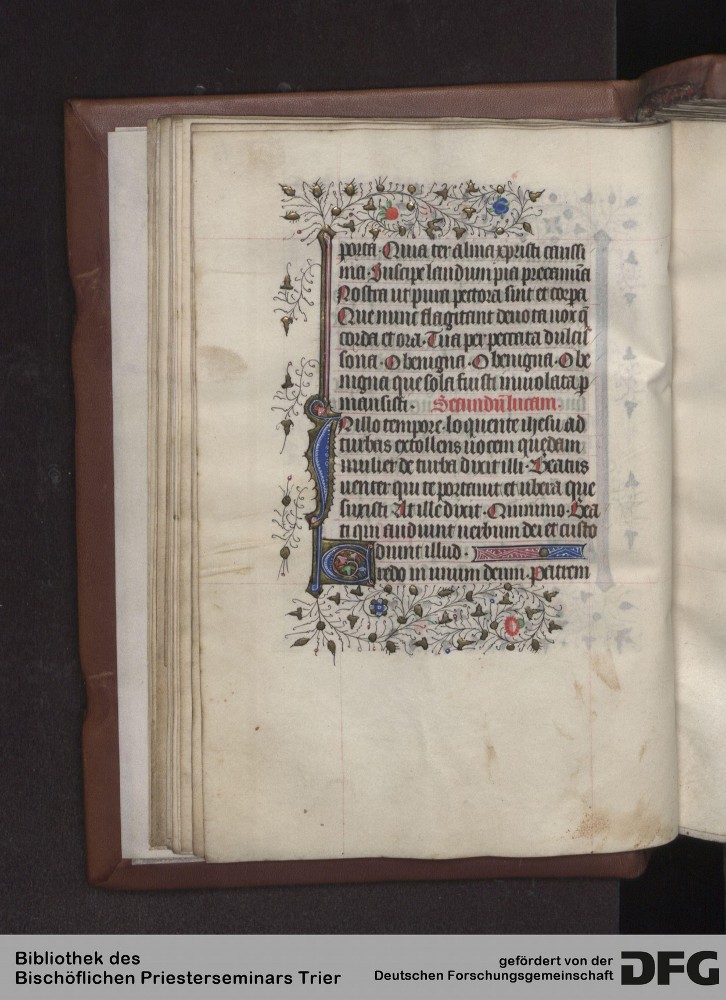 porta. Quia ter alma xpristi carissi
ma. Suscipe laudum pia precamīa
Nostra ut pura pectora sint et corpa
Que nunc flagitant deuota uox q̄
corda et ora. Tua per peccata dulcis
sona. O benigna. O benigna. O be
nigna que sola fuisti inuiolata p
mansisti. Secundū lucam.
In illo tempore. loquente ihesu ad
turbas extollens uocem quedam
mulier de turba dixit illi. Beatus
uenter qui te portauit et ubera que
suxisti. At ille dixit. Quinimo. Bea
ti qui audiunt uerbum dei et custo
diunt illud.
Credo in unum deum. Patrem
Bibliothek des
Bischöflichen Priesterseminars Trier
gefördert von der
Deutschen Forschungsgemeinschaft
DFG